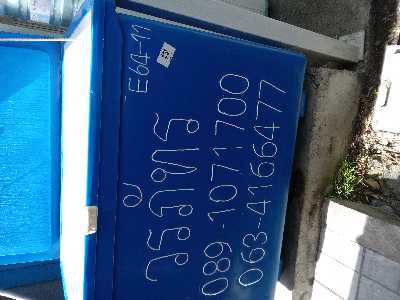 E64-11
วรภัทร
089-1071700
063-4166477